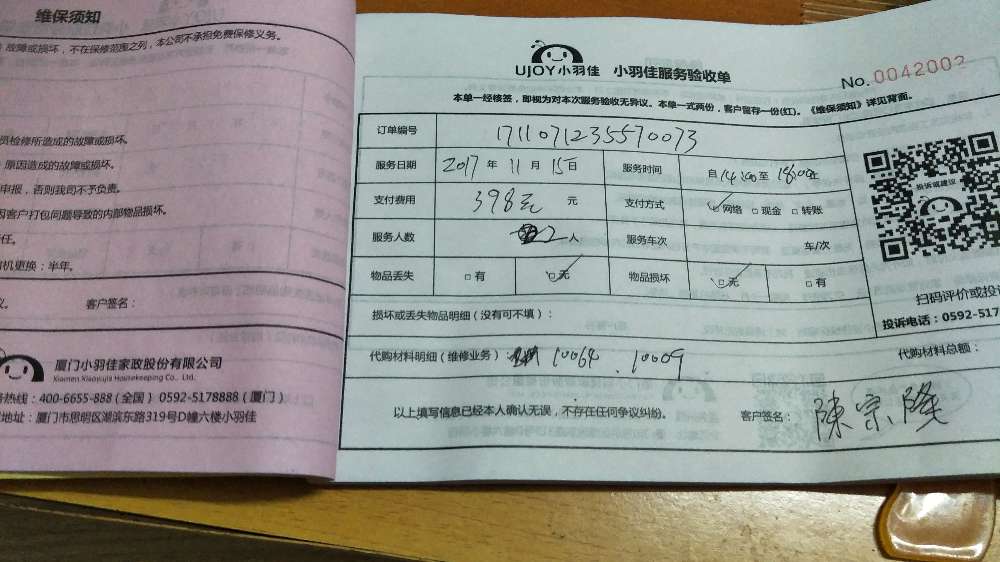 维保须知
故障或损坏，不在保修范围之列，本公司不承担免费保修义务。
员检修所造成的故障或损坏。
原因造成的故障或损坏。
申报，否则我司不予负责。
因客户打包问题导致的内部物品损坏。
任。
机更换：半年。
议。 客户签名：
厦门小羽佳家政股份有限公司
Xiamen Xiaoyujia Housekeeping Co., Ltd.
务热线：400-6655-888（全国） 0592-5178888（厦门）
地址：厦门市思明区湖滨东路319号D幢六楼小羽佳
UJOY小羽佳 小羽佳服务验收单
No. 0042002
本单一经核签，即视为对本次服务验收无异议。本单一式两份，客户留存一份(红)。《维保须知》详见背面。
订单编号 1711071235570073
服务日期 2017 年 11 月 15 日 服务时间 自 14:00 至 18:00 止
支付费用 398元 元 支付方式 ☑网络 □现金 □转账
服务人数 2 人 服务车次 车/次
物品丢失 □有 ☑无 物品损坏 ☑无 □有
损坏或丢失物品明细（没有可不填）：
代购材料明细（维修业务） 10064 . 10009 代购材料总额：
以上填写信息已经本人确认无误，不存在任何争议纠纷。 客户签名： 陳宗隆
投诉或建议
扫码评价或投诉
投诉电话：0592-517